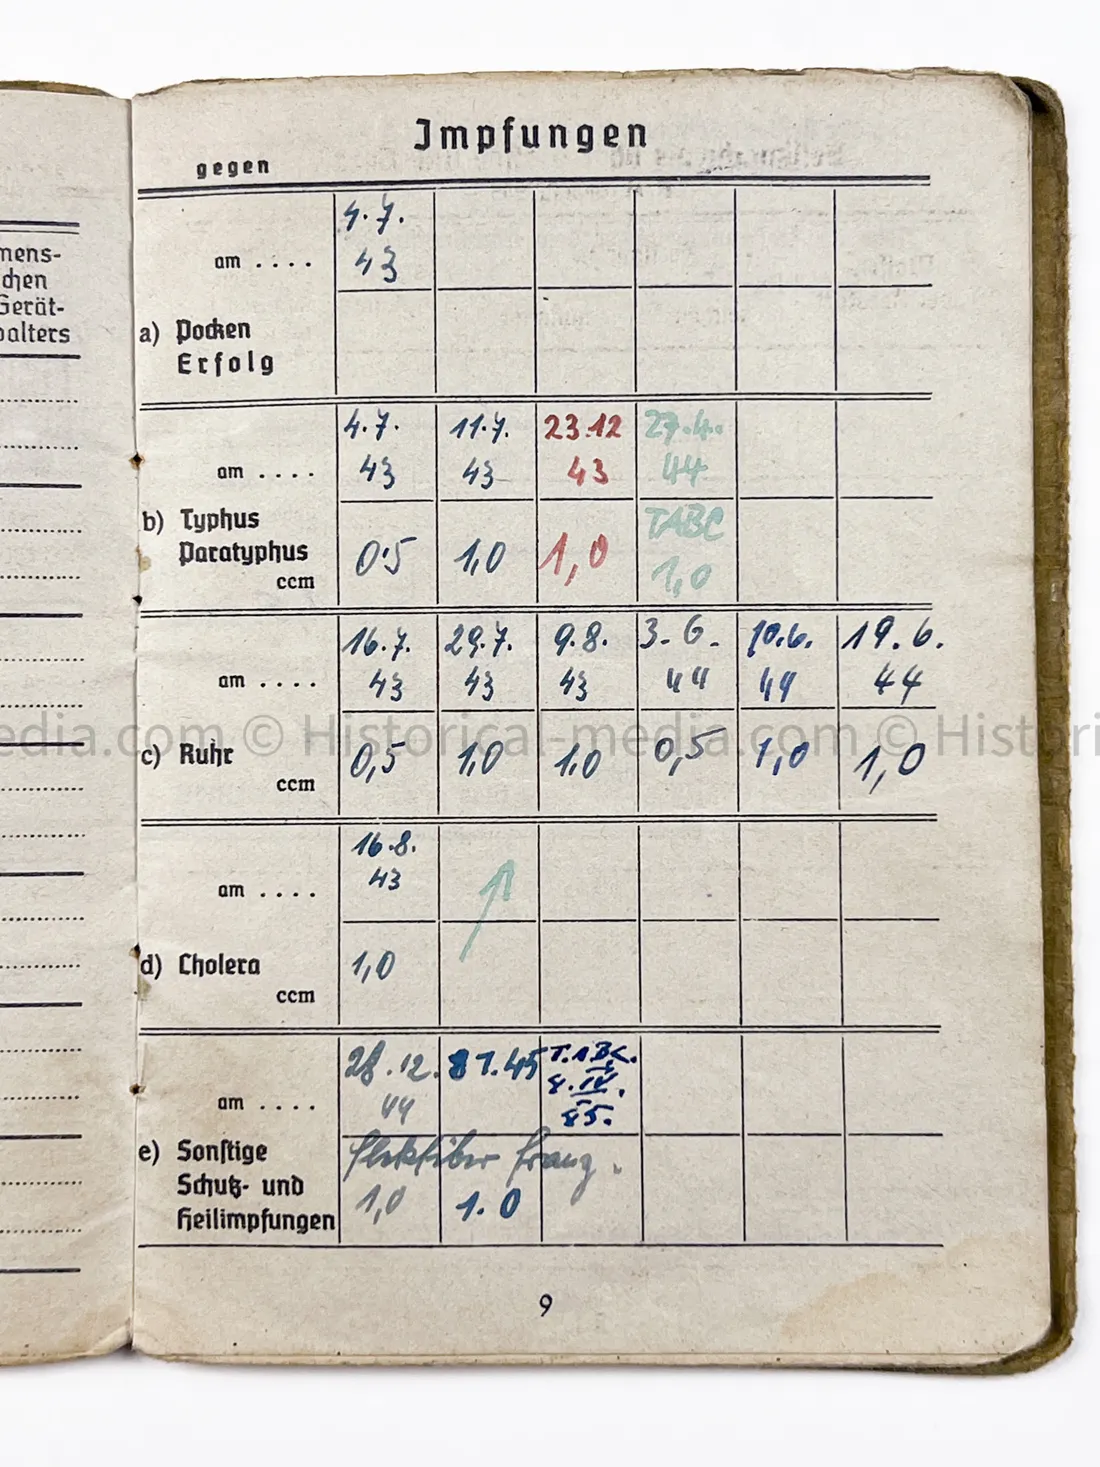 mens-
chen
Gerät-
halters
Impfungen
gegen
4.7.
am .... 43
a) Pocken
Erfolg
4.7. 11.7. 23.12 27.4.
am .... 43 43 43 44
b) Typhus TABC
Paratyphus 0.5 1,0 1,0 1,0
ccm
16.7. 29.7. 9.8. 3.6. 10.6. 19.6.
am .... 43 43 43 44 44 44
edia.com © Historical-media.com © Histori
c) Ruhr 0,5 1,0 1.0 0,5 1,0 1,0
ccm
16.8.
am .... 43
d) Cholera 1,0
ccm
28.12. 8 1.45 T.A.B.C.
am .... 44 8.IV.
e) Sonstige
Schutz- und 1,0 1.0
Heilimpfungen
9